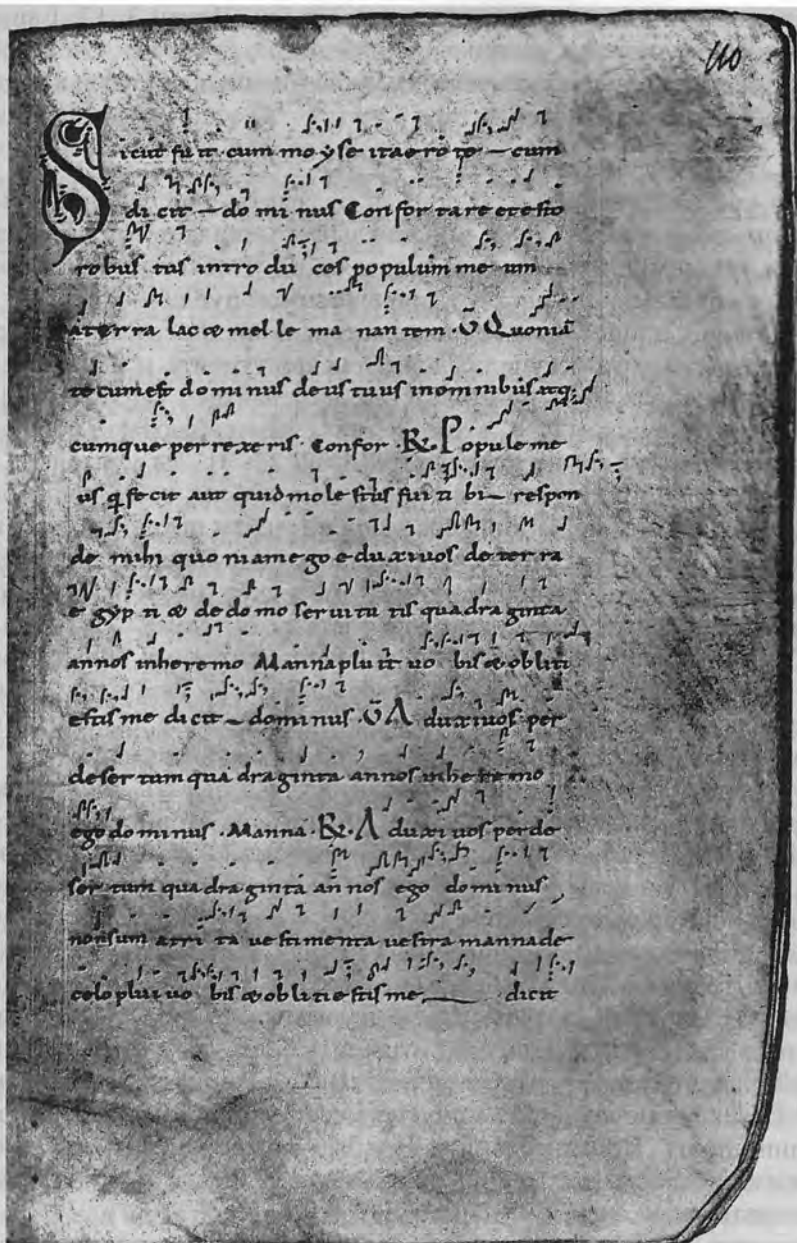 110
Sicut fuit cum moyse ita ero te — cum
di cit — do mi nus Confor tare et esto
robus tus intro du ces populum me um
a terra lac & mel le ma nan tem . V Quoniā
tecum est do mi nus deus tuus in omnibus
cumque per rexe ris . Confor . R . Popule me
us fecit aut quid mole stus fui ti bi — respon
de mihi quo niam ego e duxi uos de ter ra
e gyp ti & de do mo ser uitu tis quadra ginta
annos in heremo Manna pluit uo bis & obliti
estis me dicit — dominus . V A duxi uos per
deser tum qua draginta annos in heremo
ego do minus . Manna . R . A duxi uos per de
ser tum qua dra ginta an nos ego do mi nus
non sum atri ta ue stimenta uestra manna de
celo plui uo bis & obliti estis me — dicit